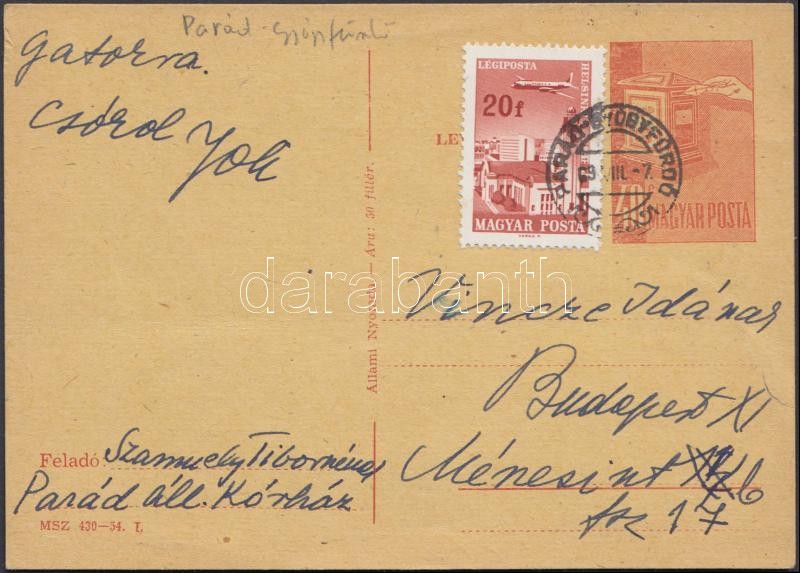 Parád
gatorva.
Csórol Joli
LÉGIPOSTA
HELSIN
20 f
MAGYAR POSTA
LEV
PARÁD-GYÓGYFÜRDŐ
69 VIII. -7.
40 f
MAGYAR POSTA
Állami Nyomda — Ára: 50 fillér.
darabanth
Vincze Idának
Budapest XI
Ménesi út
b
fsz 17
Feladó: Szamuely Tiborméné
Parád áll. Kórház
MSZ 430—54. I.